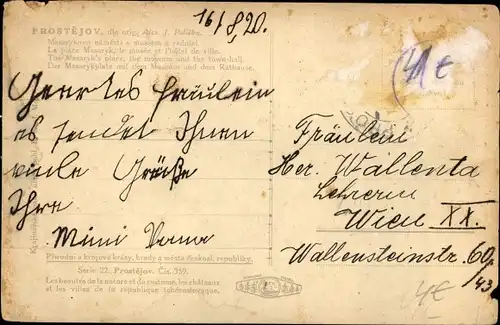 16/8.20.
PROSTĚJOV, dle orig. Ajax. J. Polička.
Masarykovo náměstí s museem a radnicí.
La place Masaryk, le musée et l'hôtel de ville.
The Masaryk's place, the museum and the town-hall.
Der Masarykplatz mit dem Museum und dem Rathause.
4€
Geertes Fräulein
es sendet Ihnen
viele Grüße
Ihre
Mimi
Fräulein
Her. Wallenta
Lehrerin
Wien XX.
Wallensteinstr. 60/
43
Přírodní a krajové krásy, hrady a města českosl. republiky.
Serie 22. Prostějov. Čís. 359.
Les beautés de la nature et du costume, les châteaux
et les villes de la république tchécoslovaque.
4€